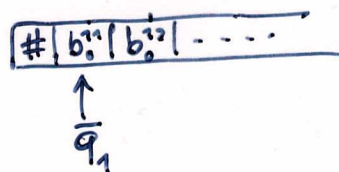 # | b₀ⁱ¹ | b₀ⁱ² | - - - -
↑
q̄₁